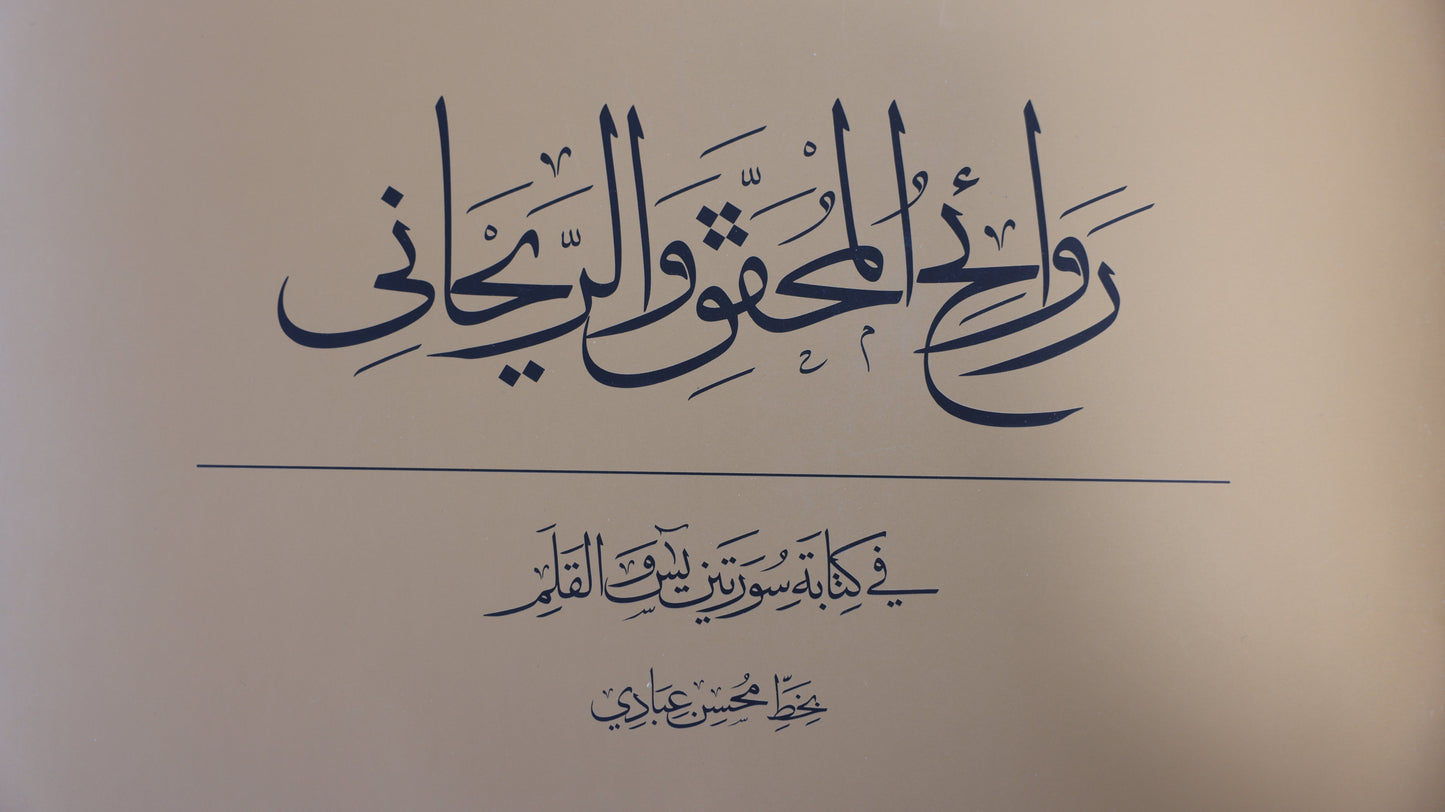 رَوَائِحُ الْمُحَقَّقِ وَالرَّيْحَانِي
في كِتَابَةِ سُورَتَيْنِ يٰسٓ وَالْقَلَمِ
بِخَطِّ مُحْسِن عِبَادِي